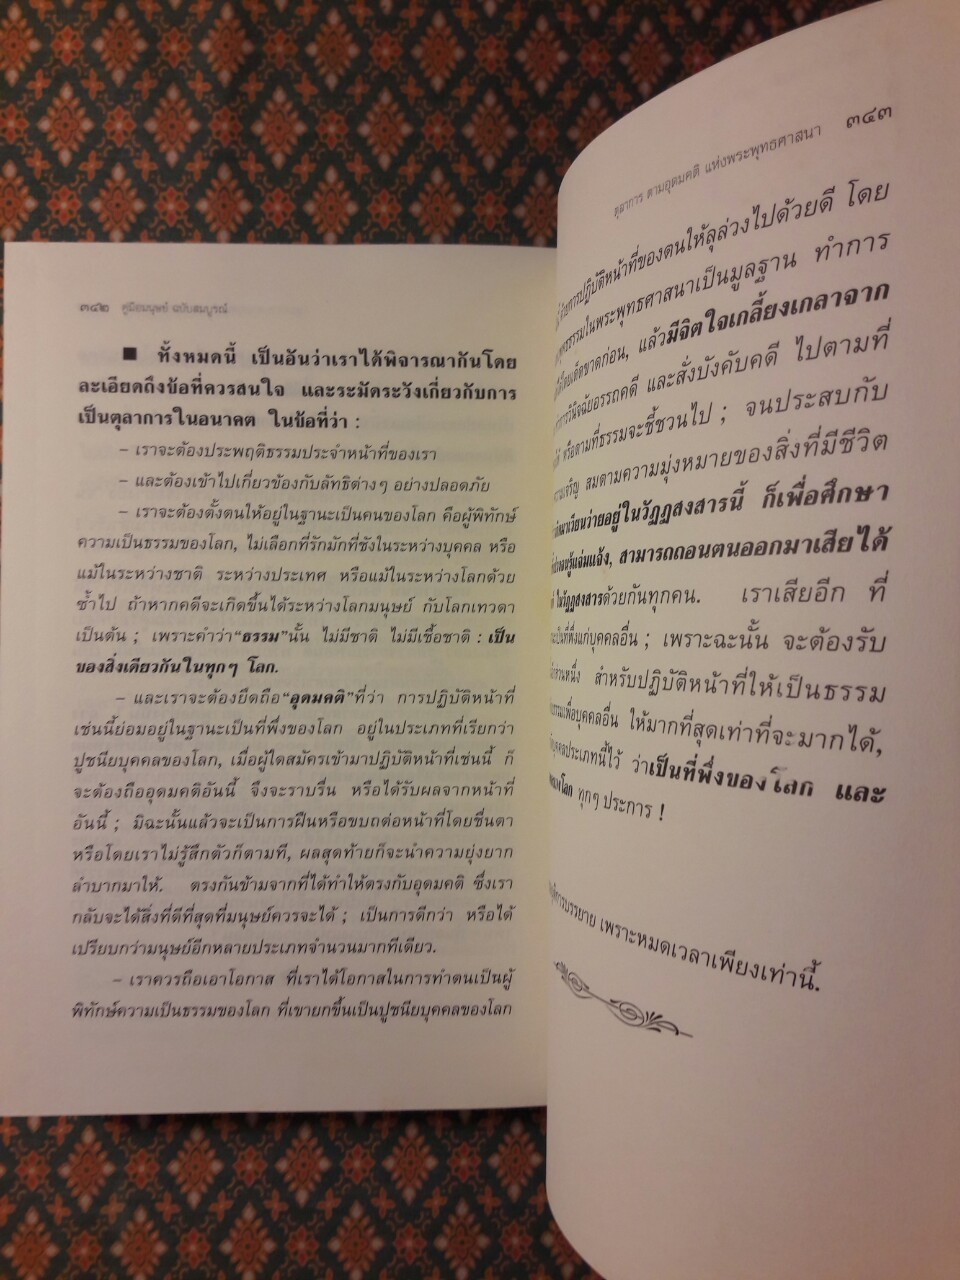 ๓๔๒ คู่มือมนุษย์ ฉบับสมบูรณ์
■ ทั้งหมดนี้ เป็นอันว่าเราได้พิจารณากันโดย
ละเอียดถึงข้อที่ควรสนใจ และระมัดระวังเกี่ยวกับการ
เป็นตุลาการในอนาคต ในข้อที่ว่า :
– เราจะต้องประพฤติธรรมประจำหน้าที่ของเรา
– และต้องเข้าไปเกี่ยวข้องกับลัทธิต่างๆ อย่างปลอดภัย
– เราจะต้องตั้งตนให้อยู่ในฐานะเป็นคนของโลก คือผู้พิทักษ์
ความเป็นธรรมของโลก, ไม่เลือกที่รักมักที่ชังในระหว่างบุคคล หรือ
แม้ในระหว่างชาติ ระหว่างประเทศ หรือแม้ในระหว่างโลกด้วย
ซ้ำไป ถ้าหากคดีจะเกิดขึ้นได้ระหว่างโลกมนุษย์ กับโลกเทวดา
เป็นต้น ; เพราะคำว่า“ธรรม”นั้น ไม่มีชาติ ไม่มีเชื้อชาติ : เป็น
ของสิ่งเดียวกันในทุกๆ โลก.
– และเราจะต้องยึดถือ“อุดมคติ”ที่ว่า การปฏิบัติหน้าที่
เช่นนี้ย่อมอยู่ในฐานะเป็นที่พึ่งของโลก อยู่ในประเภทที่เรียกว่า
ปูชนียบุคคลของโลก, เมื่อผู้ใดสมัครเข้ามาปฏิบัติหน้าที่เช่นนี้ ก็
จะต้องถืออุดมคติอันนี้ จึงจะราบรื่น หรือได้รับผลจากหน้าที่
อันนี้ ; มิฉะนั้นแล้วจะเป็นการฝืนหรือขบถต่อหน้าที่โดยชื่นตา
หรือโดยเราไม่รู้สึกตัวก็ตามที, ผลสุดท้ายก็จะนำความยุ่งยาก
ลำบากมาให้. ตรงกันข้ามจากที่ได้ทำให้ตรงกับอุดมคติ ซึ่งเรา
กลับจะได้สิ่งที่ดีที่สุดที่มนุษย์ควรจะได้ ; เป็นการดีกว่า หรือได้
เปรียบกว่ามนุษย์อีกหลายประเภทจำนวนมากทีเดียว.
– เราควรถือเอาโอกาส ที่เราได้โอกาสในการทำตนเป็นผู้
พิทักษ์ความเป็นธรรมของโลก ที่เขายกขึ้นเป็นปูชนียบุคคลของโลก
ตุลาการ ตามอุดมคติ แห่งพระพุทธศาสนา ๓๔๓
ด้วยการปฏิบัติหน้าที่ของตนให้ลุล่วงไปด้วยดี โดย
ในพระพุทธศาสนาเป็นมูลฐาน ทำการ
โดยเด็ดขาดก่อน, แล้วมีจิตใจเกลี้ยงเกลาจาก
การวินิจฉัยอรรถคดี และสั่งบังคับคดี ไปตามที่
หรือตามที่ธรรมจะชี้ชวนไป ; จนประสบกับ
สมตามความมุ่งหมายของสิ่งที่มีชีวิต
เวียนว่ายอยู่ในวัฏฏสงสารนี้ ก็เพื่อศึกษา
รู้แจ่มแจ้ง, สามารถถอนตนออกมาเสียได้
ในวัฏฏสงสารด้วยกันทุกคน. เราเสียอีก ที่
เป็นที่พึ่งแก่บุคคลอื่น ; เพราะฉะนั้น จะต้องรับ
สำหรับปฏิบัติหน้าที่ให้เป็นธรรม
เพื่อบุคคลอื่น ให้มากที่สุดเท่าที่จะมากได้,
บุคคลประเภทนี้ไว้ ว่าเป็นที่พึ่งของโลก และ
ของโลก ทุกๆ ประการ !
การบรรยาย เพราะหมดเวลาเพียงเท่านี้.